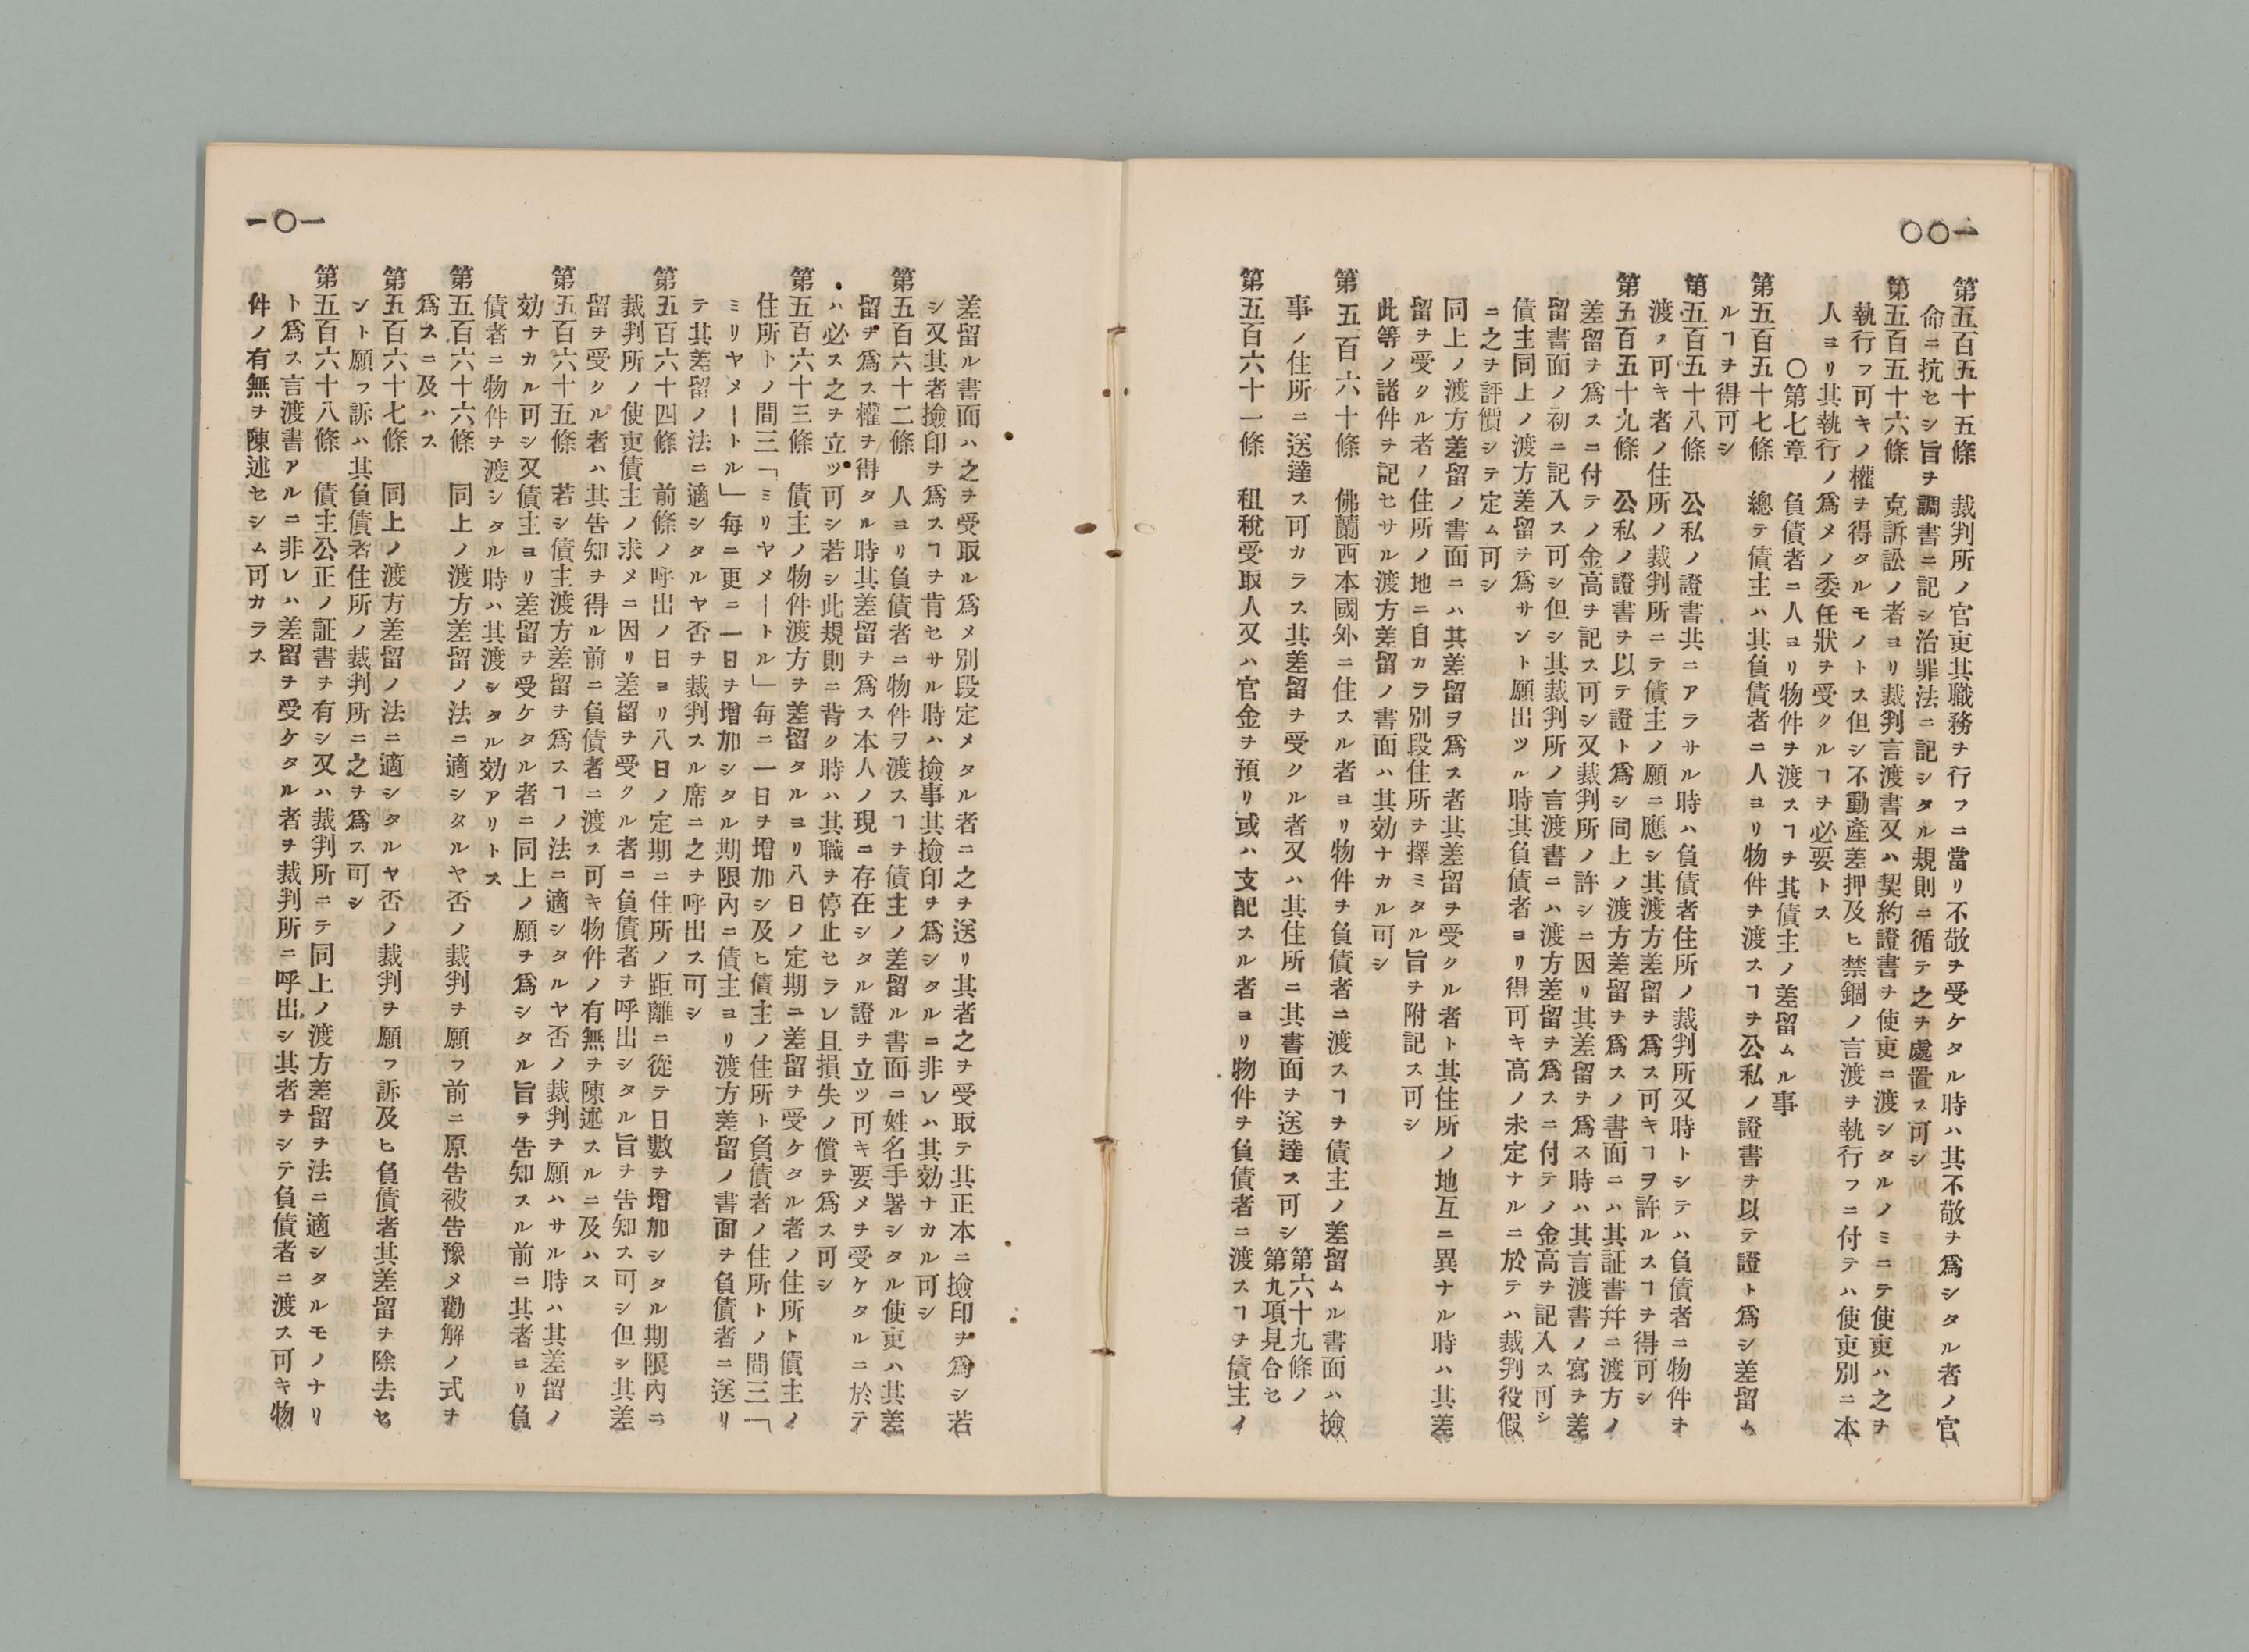 一〇〇
第五百五十五條　裁判所ノ官吏其職務ヲ行フニ當リ不敬ヲ受ケタル時ハ其不敬ヲ爲シタル者ノ官
命ニ抗セシ旨ヲ調書ニ記シ治罪法ニ記シタル規則ニ循テ之ヲ處置ス可シ
第五百五十六條　克訴訟ノ者ヨリ裁判言渡書又ハ契約證書ヲ使吏ニ渡シタルノミニテ使吏ハ之ヲ
執行フ可キノ權ヲ得タルモノトス但シ不動產差押及ヒ禁錮ノ言渡ヲ執行フニ付テハ使吏別ニ本
人ヨリ其執行ノ爲メノ委任狀ヲ受クルヿヲ必要トス
〇第七章　負債者ニ人ヨリ物件ヲ渡スヿヲ其債主ノ差留ムル事
第五百五十七條　總テ債主ハ其負債者ニ人ヨリ物件ヲ渡スヿヲ公私ノ證書ヲ以テ證ト爲シ差留ム
ルヿヲ得可シ
第五百五十八條　公私ノ證書共ニアラサル時ハ負債者住所ノ裁判所又時トシテハ負債者ニ物件ヲ
渡ス可キ者ノ住所ノ裁判所ニテ債主ノ願ニ應シ其渡方差留ヲ爲ス可キヿヲ許ルスヿヲ得可シ
第五百五十九條　公私ノ證書ヲ以テ證ト爲シ同上ノ渡方差留ヲ爲スノ書面ニハ其証書幷ニ渡方ノ
差留ヲ爲スニ付テノ金高ヲ記ス可シ又裁判所ノ許シニ因リ其差留ヲ爲ス時ハ其言渡書ノ寫ヲ差
留書面ノ初ニ記入ス可シ但シ其裁判所ノ言渡書ニハ渡方差留ヲ爲スニ付テノ金高ヲ記入ス可シ
債主同上ノ渡方差留ヲ爲サント願出ツル時其負債者ヨリ得可キ高ノ未定ナルニ於テハ裁判役假
ニ之ヲ評價シテ定ム可シ
同上ノ渡方差留ノ書面ニハ其差留ヲ爲ス者其差留ヲ受クル者ト其住所ノ地互ニ異ナル時ハ其差
留ヲ受クル者ノ住所ノ地ニ自カラ別段住所ヲ擇ミタル旨ヲ附記ス可シ
此等ノ諸件ヲ記セサル渡方差留ノ書面ハ其効ナカル可シ
第五百六十條　佛蘭西本國外ニ住スル者ヨリ物件ヲ負債者ニ渡スヿヲ債主ノ差留ムル書面ハ撿
事ノ住所ニ送達ス可カラス其差留ヲ受クル者又ハ其住所ニ其書面ヲ送達ス可シ第六十九條ノ
第九項見合セ
第五百六十一條　租稅受取人又ハ官金ヲ預リ或ハ支配スル者ヨリ物件ヲ負債者ニ渡スヿヲ債主ノ
一〇一
差留ル書面ハ之ヲ受取ル爲メ別段定メタル者ニ之ヲ送リ其者之ヲ受取テ其正本ニ撿印ヲ爲シ若
シ又其者撿印ヲ爲スヿヲ肯セサル時ハ撿事其撿印ヲ爲シタルニ非レハ其効ナカル可シ
第五百六十二條　人ヨリ負債者ニ物件ヲ渡スヿヲ債主ノ差留ル書面ニ姓名手署シタル使吏ハ其差
留ヲ爲ス權ヲ得タル時其差留ヲ爲ス本人ノ現ニ存在シタル證ヲ立ツ可キ要メヲ受ケタルニ於テ
ハ必ス之ヲ立ツ可シ若シ此規則ニ背ク時ハ其職ヲ停止セラレ且損失ノ償ヲ爲ス可シ
第五百六十三條　債主ノ物件渡方ヲ差留タルヨリ八日ノ定期ニ差留ヲ受ケタル者ノ住所ト債主ノ
住所トノ間三「ミリヤメートル」每ニ一日ヲ增加シ及ヒ債主ノ住所ト負債者ノ住所トノ間三「
ミリヤメートル」每ニ更ニ一日ヲ增加シタル期限內ニ債主ヨリ渡方差留ノ書面ヲ負債者ニ送リ
テ其差留ノ法ニ適シタルヤ否ヲ裁判スル席ニ之ヲ呼出ス可シ
第五百六十四條　前條ノ呼出ノ日ヨリ八日ノ定期ニ住所ノ距離ニ從テ日數ヲ增加シタル期限內ニ
裁判所ノ使吏債主ノ求メニ因リ差留ヲ受クル者ニ負債者ヲ呼出シタル旨ヲ告知ス可シ但シ其差
留ヲ受クル者ハ其告知ヲ得ル前ニ負債者ニ渡ス可キ物件ノ有無ヲ陳述スルニ及ハス
第五百六十五條　若シ債主渡方差留ヲ爲スヿノ法ニ適シタルヤ否ノ裁判ヲ願ハサル時ハ其差留ノ
効ナカル可シ又債主ヨリ差留ヲ受ケタル者ニ同上ノ願ヲ爲シタル旨ヲ告知スル前ニ其者ヨリ負
債者ニ物件ヲ渡シタル時ハ其渡シタル効アリトス
第五百六十六條　同上ノ渡方差留ノ法ニ適シタルヤ否ノ裁判ヲ願フ前ニ原告被告豫メ勸解ノ式ヲ
爲スニ及ハス
第五百六十七條　同上ノ渡方差留ノ法ニ適シタルヤ否ノ裁判ヲ願フ訴及ヒ負債者其差留ヲ除去セ
ント願フ訴ハ其負債者住所ノ裁判所ニ之ヲ爲ス可シ
第五百六十八條　債主公正ノ証書ヲ有シ又ハ裁判所ニテ同上ノ渡方差留ヲ法ニ適シタルモノナリ
ト爲ス言渡書アルニ非レハ差留ヲ受ケタル者ヲ裁判所ニ呼出シ其者ヲシテ負債者ニ渡ス可キ物
件ノ有無ヲ陳述セシム可カラス